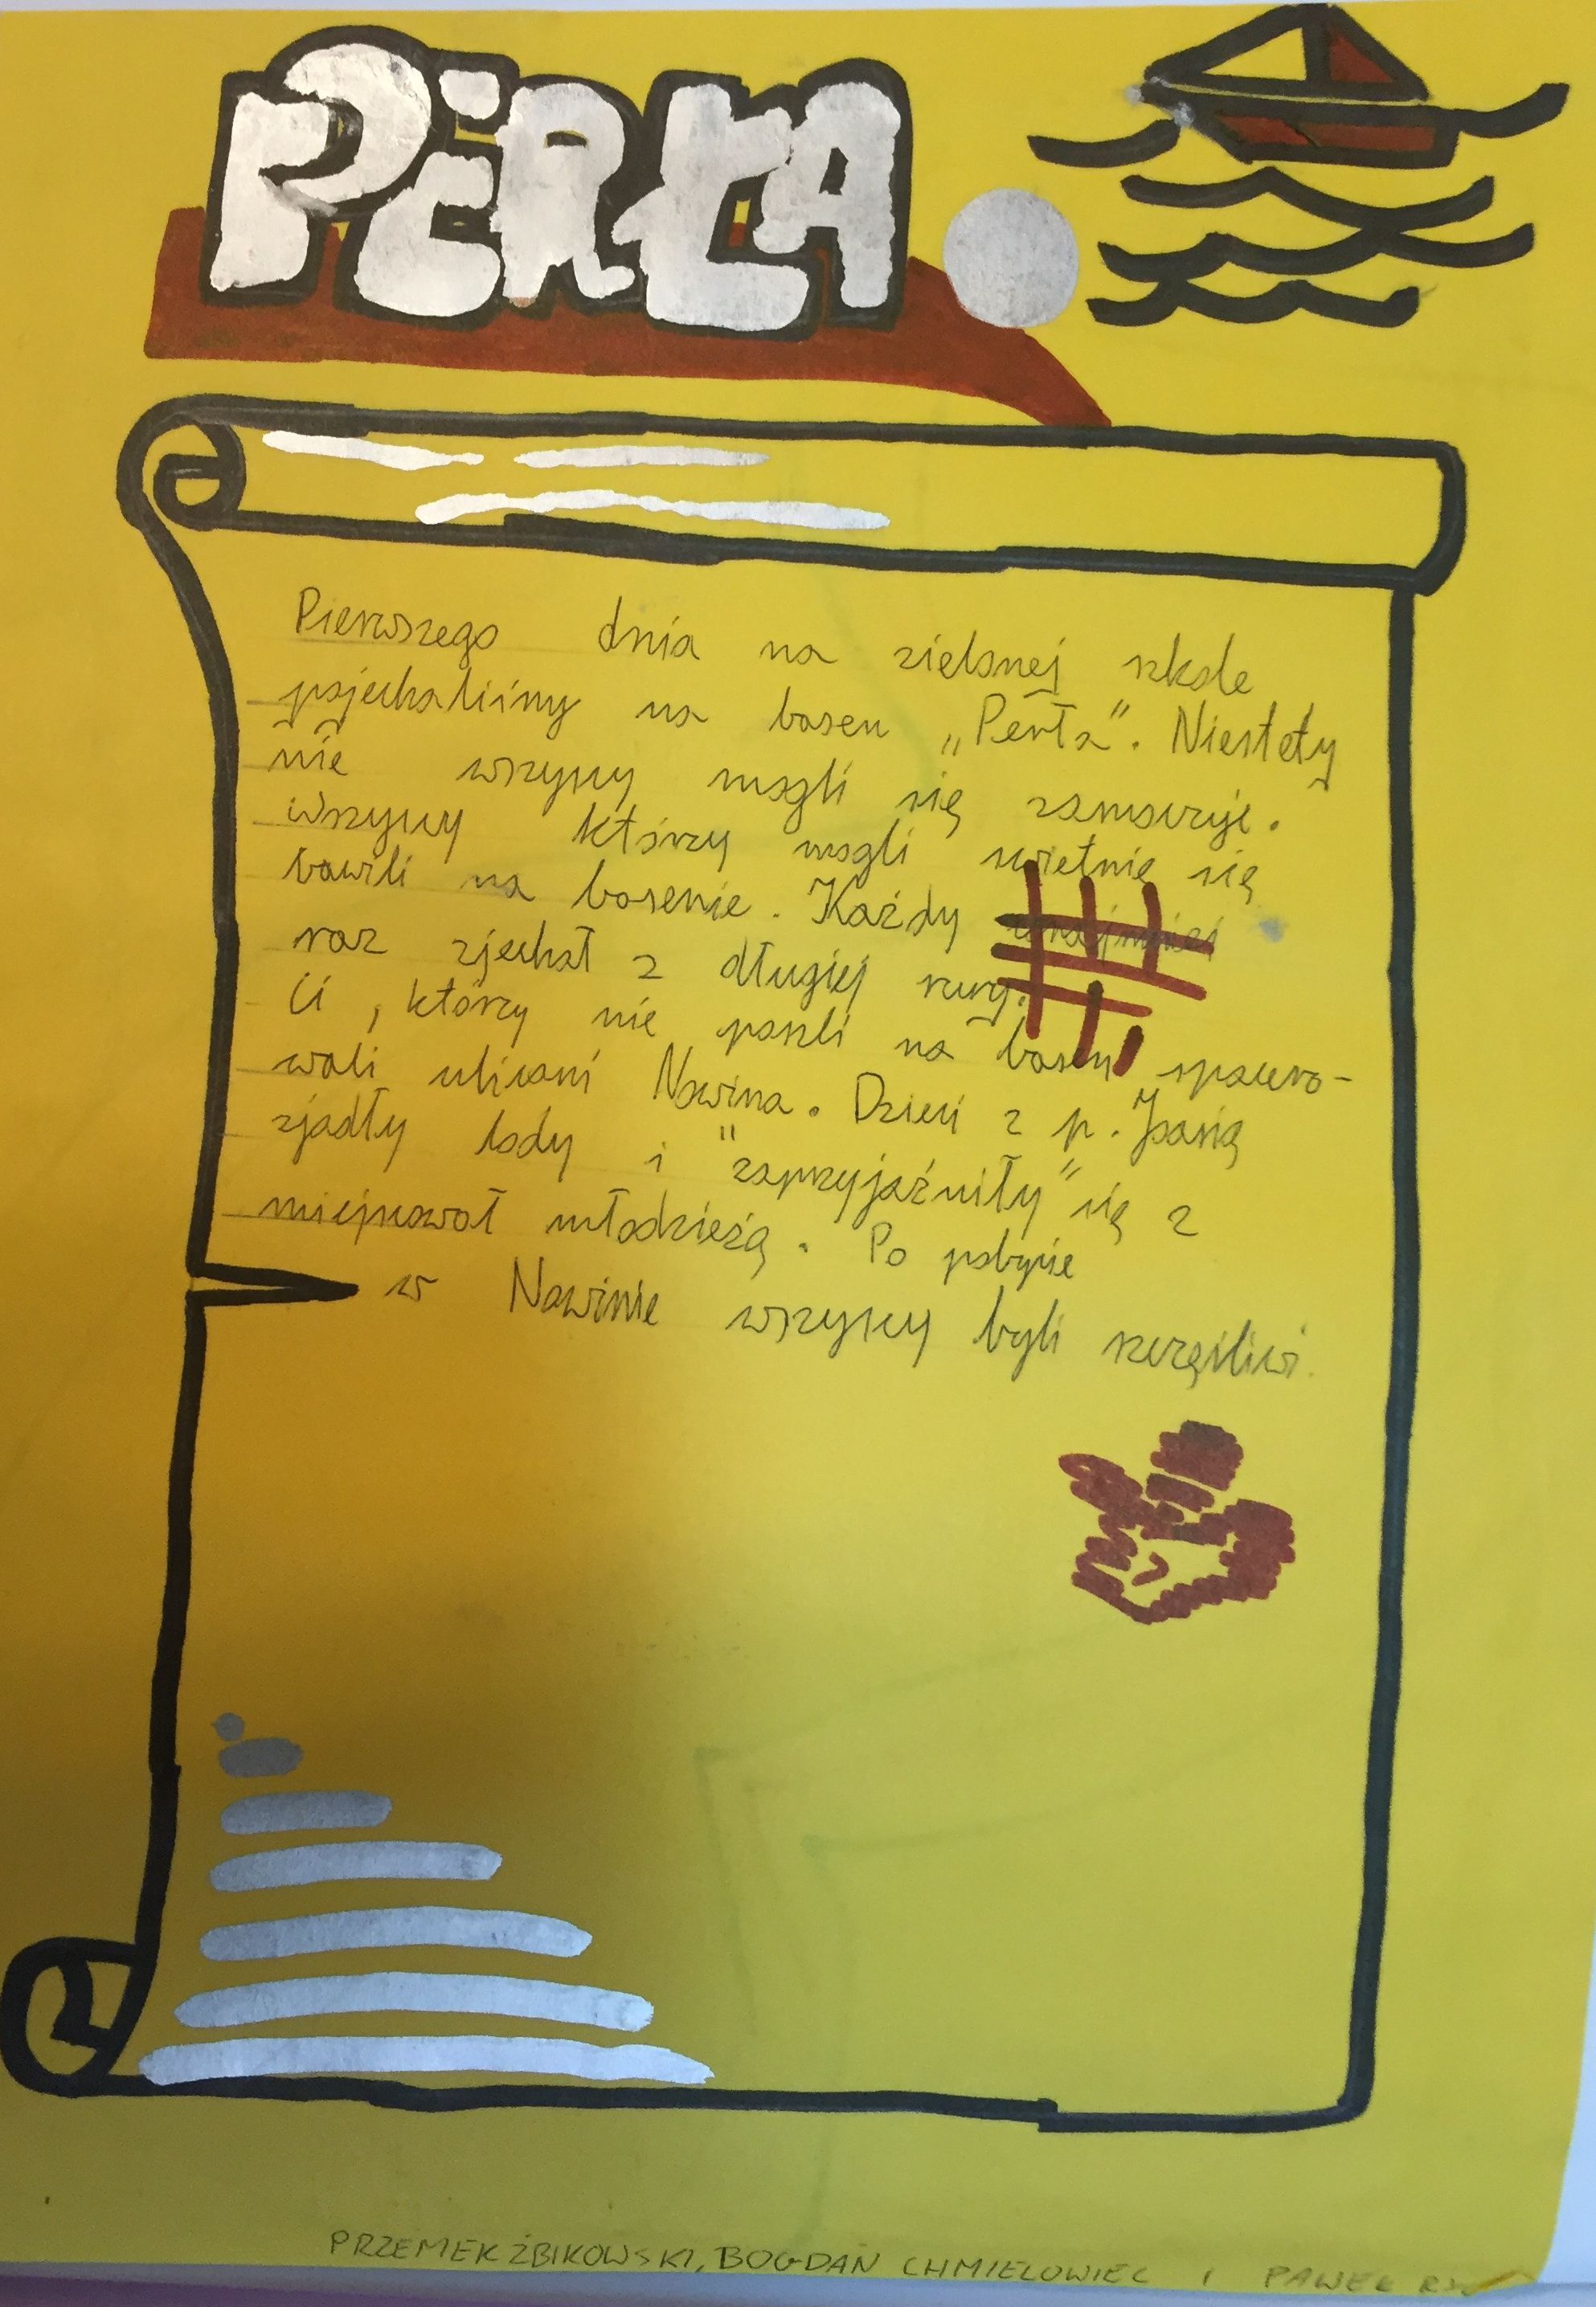 PERŁA
Pierwszego dnia na zielonej szkole
pojechaliśmy na basen „Perła”. Niestety
nie wszyscy mogli się
wszyscy którzy mogli świetnie się
bawili na basenie. Każdy
raz zjechał z długiej rury.
Ci, którzy nie poszli na basen spacero-
wali ulicami Nowina. Dzieci z p. Joasią
zjadły lody i "zaprzyjaźniły" się z
miejscową młodzieżą. Po pobycie
w Nowinie wszyscy byli szczęśliwi.
PRZEMEK ŻBIKOWSKI, BOGDAN CHMIELOWIEC I PAWEŁ